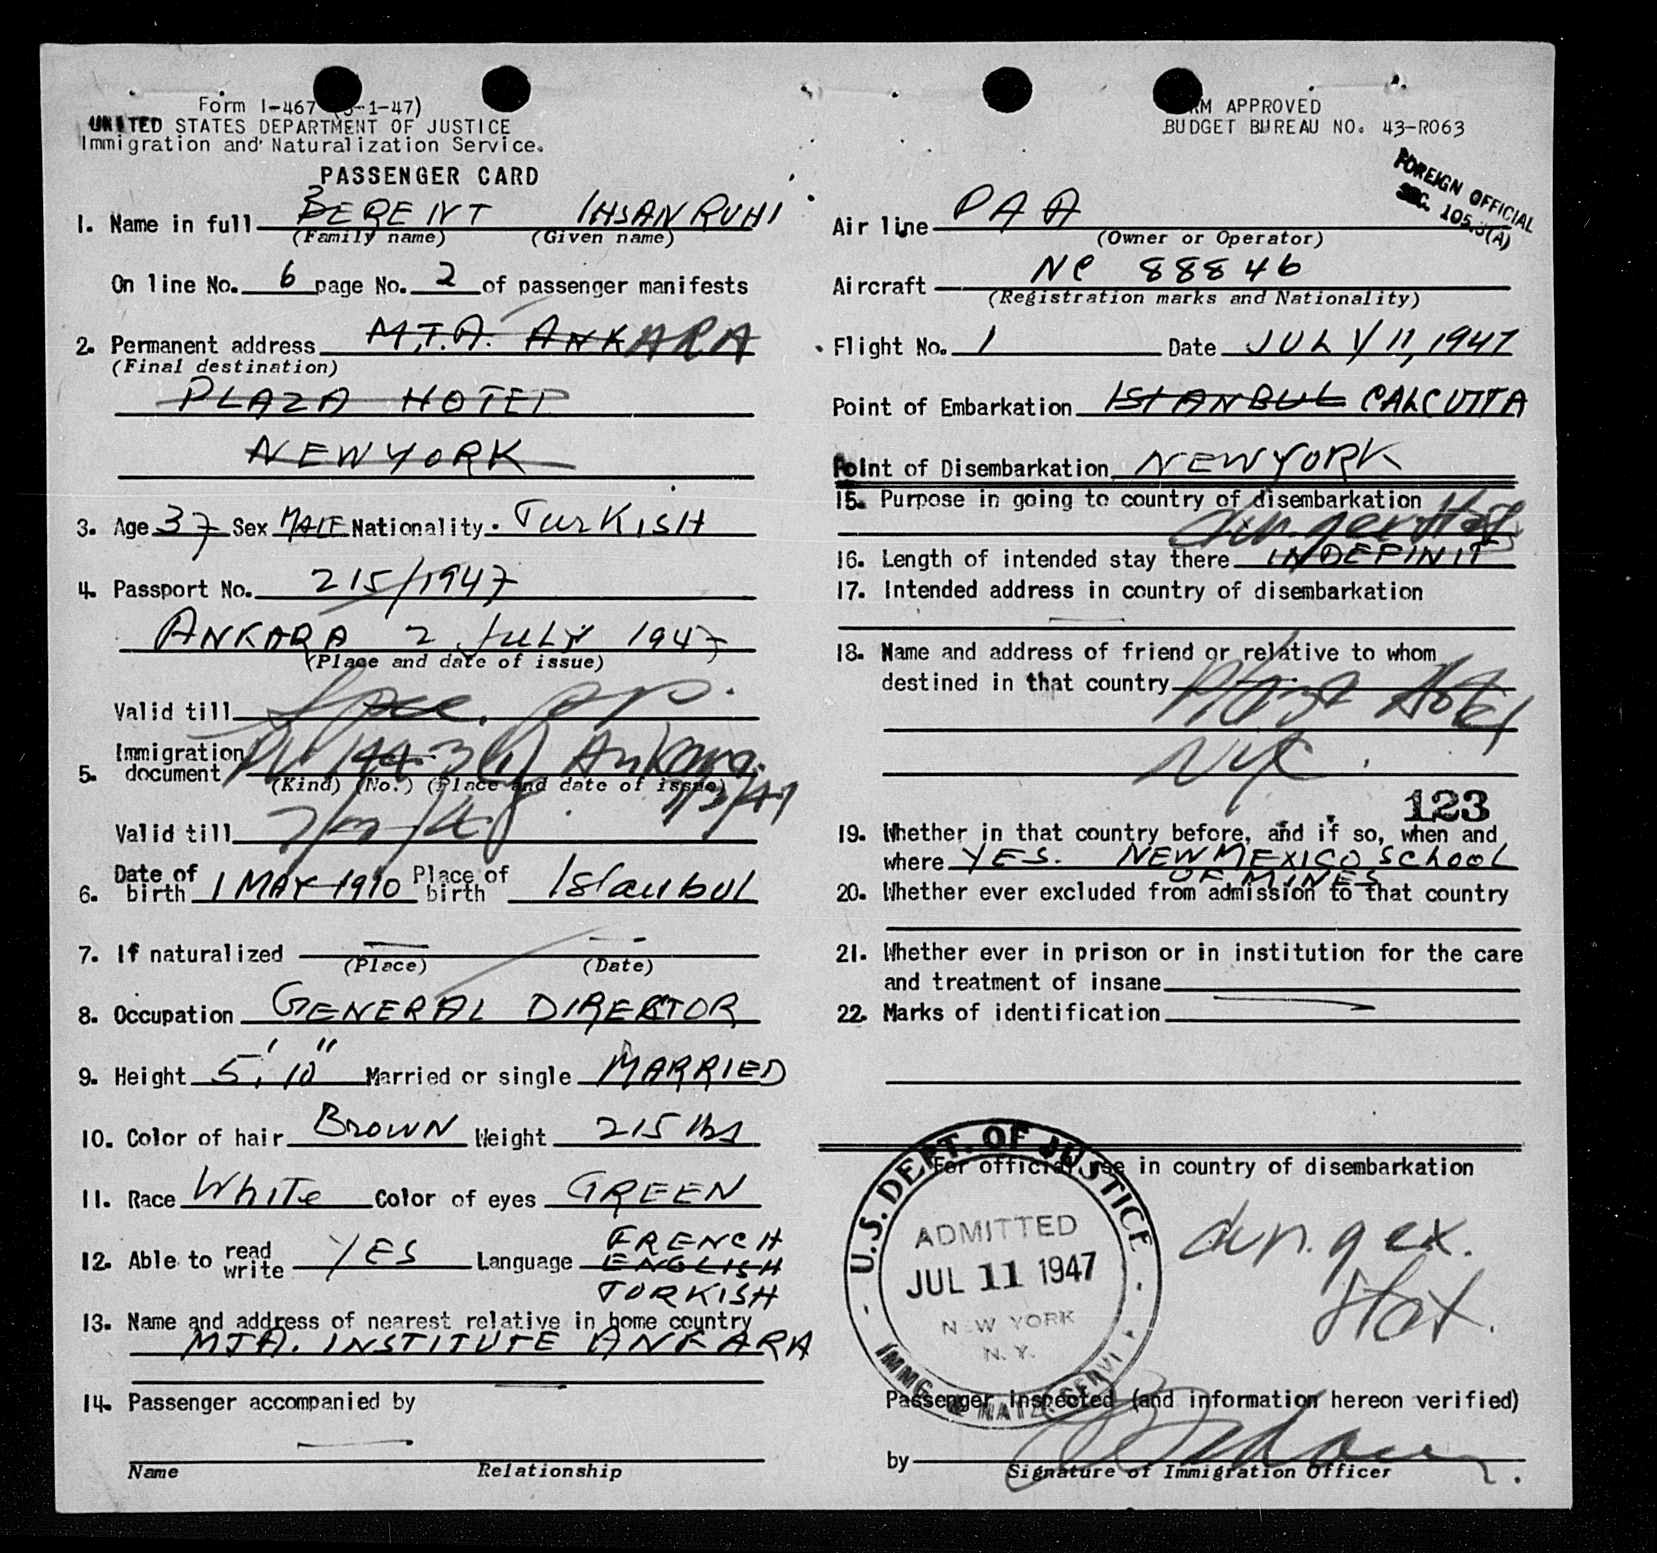 Form I-467 -1-47)
UNITED STATES DEPARTMENT OF JUSTICE
Immigration and Naturalization Service.
PASSENGER CARD
1. Name in full BERENT IHSAN RUHI
(Family name) (Given name)
On line No. 6 page No. 2 of passenger manifests
2. Permanent address M.T.A. ANKARA
(Final destination)
PLAZA HOTEL
NEWYORK
3. Age 37 Sex MALE Nationality. TURKISH
4. Passport No. 215/1947
ANKARA 2 JULY 1947
(Place and date of issue)
Valid till
5. Immigration document Ankara
(Kind) (No.) (Place and date of issue)
Valid till
6. Date of birth 1 MAY 1910 Place of birth Istanbul
7. If naturalized
(Place) (Date)
8. Occupation GENERAL DIRECTOR
9. Height 5' 10" Married or single MARRIED
10. Color of hair BROWN Weight 215 lbs
11. Race WHITE Color of eyes GREEN
12. Able to read write YES Language FRENCH
ENGLISH
TURKISH
13. Name and address of nearest relative in home country
MTA. INSTITUTE ANKARA
14. Passenger accompanied by
Name Relationship
FORM APPROVED
BUDGET BUREAU NO. 43-R063
FOREIGN OFFICIAL
SEC. 105.3(A)
Air line PAA
(Owner or Operator)
Aircraft NC 88846
(Registration marks and Nationality)
Flight No. 1 Date JULY 11, 1947
Point of Embarkation ISTANBUL CALCUTTA
Point of Disembarkation NEWYORK
15. Purpose in going to country of disembarkation
16. Length of intended stay there INDEFINIT
17. Intended address in country of disembarkation
18. Name and address of friend or relative to whom
destined in that country Plaza Hotel
NYC.
123
19. Whether in that country before, and if so, when and
where YES. NEWMEXICO SCHOOL
OF MINES
20. Whether ever excluded from admission to that country
21. Whether ever in prison or in institution for the care
and treatment of insane
22. Marks of identification
For official use in country of disembarkation
U.S. DEPT. OF JUSTICE
ADMITTED
JUL 11 1947
NEW YORK
N.Y.
IMMG. & NATZ. SERVI
Passenger inspected (and information hereon verified)
by
Signature of Immigration Officer